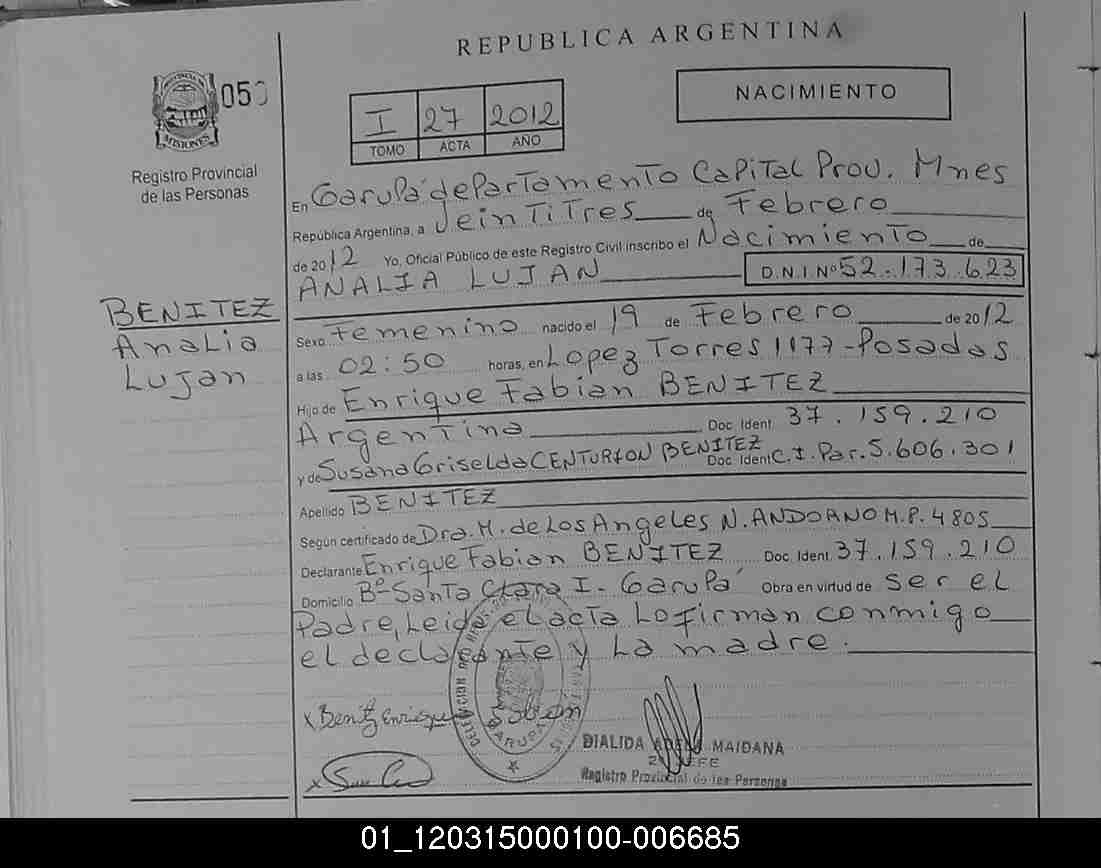 REPUBLICA ARGENTINA
PROVINCIA DE
MISIONES
050
Registro Provincial
de las Personas
I 27 2012
TOMO ACTA AÑO
NACIMIENTO
BENITEZ
Analia
Lujan
En Garupá departamento Capital Prov. Mnes
República Argentina, a Veintitres de Febrero
de 2012 Yo, Oficial Público de este Registro Civil inscribo el Nacimiento de
ANALIA LUJAN D.N.I Nº 52.173.623
Sexo Femenino nacido el 19 de Febrero de 2012
a las 02:50 horas, en Lopez Torres 1177-Posadas
Hijo de Enrique Fabian BENITEZ
Argentina Doc. Ident. 37.159.210
y de Susana Griselda CENTURION BENITEZ Doc. Ident C.I. Par. 5.606.301
Apellido BENITEZ
Según certificado de Dra. M. de Los Angeles N. ANDOANO M.P. 4805
Declarante Enrique Fabian BENITEZ Doc. Ident. 37.159.210
Domicilio Bº Santa Clara I - Garupá Obra en virtud de ser el
Padre, Leida el acta Lo firman conmigo
el declarante y La madre.
x Benitez Enrique Fabian
DELEGACION
GARUPA
DIALIDA MAIDANA
JEFE
Registro Provincial de las Personas
01_120315000100-006685